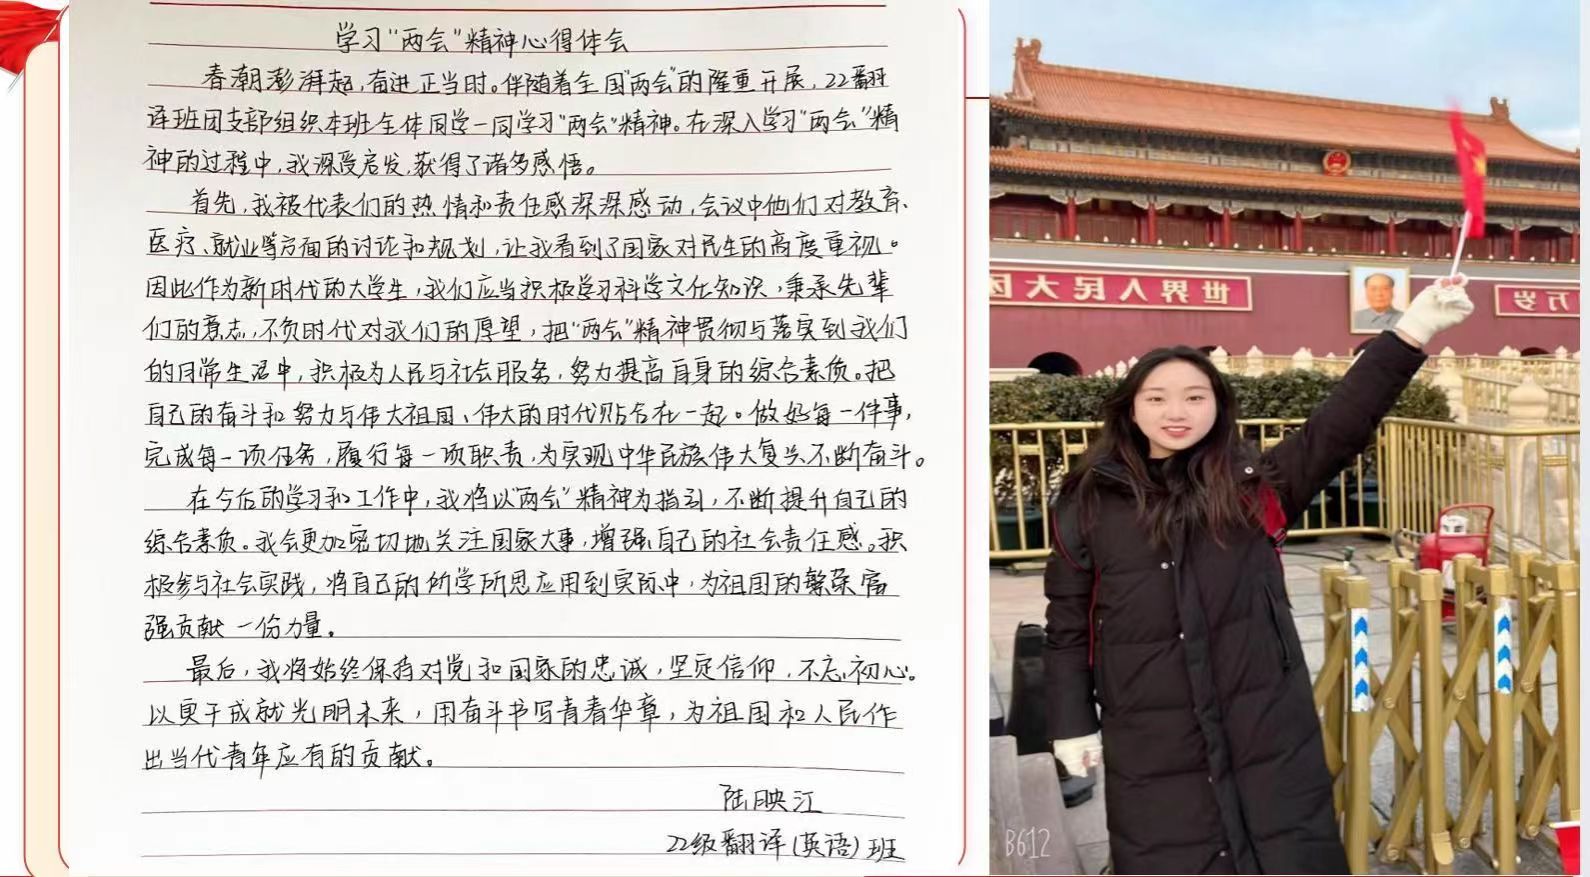 学习“两会”精神心得体会
春潮澎湃起，奋进正当时。伴随着全国“两会”的隆重开展，22翻
译班团支部组织本班全体同学一同学习“两会”精神。在深入学习“两会”精
神的过程中，我深受启发，获得了诸多感悟。
首先，我被代表们的热情和责任感深深感动，会议中他们对教育、
医疗、就业等方面的讨论和规划，让我看到了国家对民生的高度重视。
因此作为新时代的大学生，我们应当积极学习科学文化知识，秉承先辈
们的意志，不负时代对我们的厚望，把“两会”精神贯彻与落实到我们
的日常生活中，积极为人民与社会服务，努力提高自身的综合素质。把
自己的奋斗和努力与伟大祖国、伟大的时代贴合在一起。做好每一件事，
完成每一项任务，履行每一项职责，为实现中华民族伟大复兴不断奋斗。
在今后的学习和工作中，我将以“两会”精神为指引，不断提升自己的
综合素质。我会更加密切地关注国家大事，增强自己的社会责任感。积
极参与社会实践，将自己的所学所思应用到实际中，为祖国的繁荣富
强贡献一份力量。
最后，我将始终保持对党和国家的忠诚，坚定信仰，不忘初心。
以更于成就光明未来，用奋斗书写青春华章，为祖国和人民作
出当代青年应有的贡献。
陆映江
22级翻译(英语)班
世界人民大团
万岁
B612